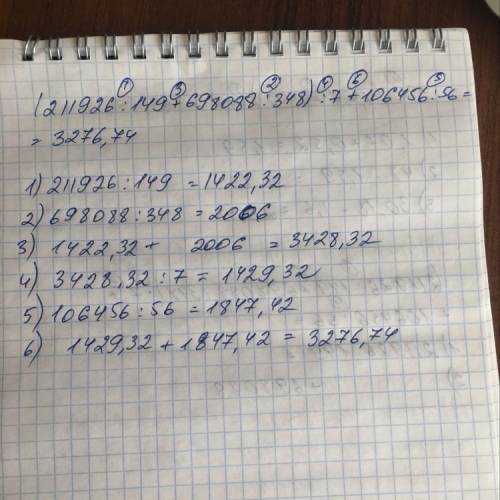 (211926:149+698088:348):7+106456:56=
= 3276,74
1) 211926:149 = 1422,32
2) 698088:348 = 2006
3) 1422,32 + 2006 = 3428,32
4) 3428,32 : 7 = 1429,32
5) 106456:56 = 1847,42
6) 1429,32 + 1847,42 = 3276,74